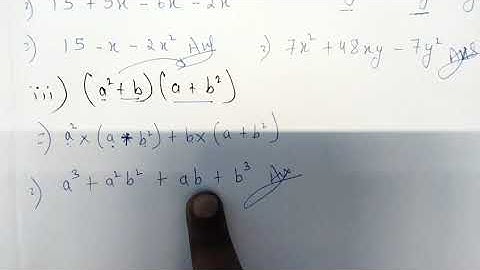 15 + 5x - 6x - 2x
⇒) 15 - x - 2x² Ans
⇒) 7x² + 48xy - 7y² Ans
iii) (a² + b) (a + b²)
⇒) a² × (a + b²) + b × (a + b²)
⇒) a³ + a²b² + ab + b³ Ans